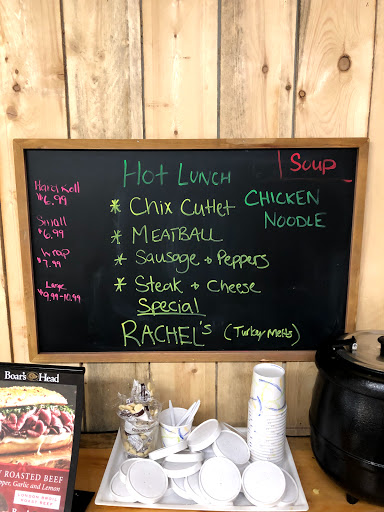 Hot Lunch
* Chix Cutlet
* MEATBALL
* Sausage + Peppers
* Steak + Cheese
Special
RACHEL's (Turkey Melts)
Soup
CHICKEN
NOODLE
Hard Roll
$6.99
Small
$6.99
Wrap
$7.99
Large
$9.99-10.99
Boar's Head
ROASTED BEEF
Pepper, Garlic and Lemon
LONDON BROIL